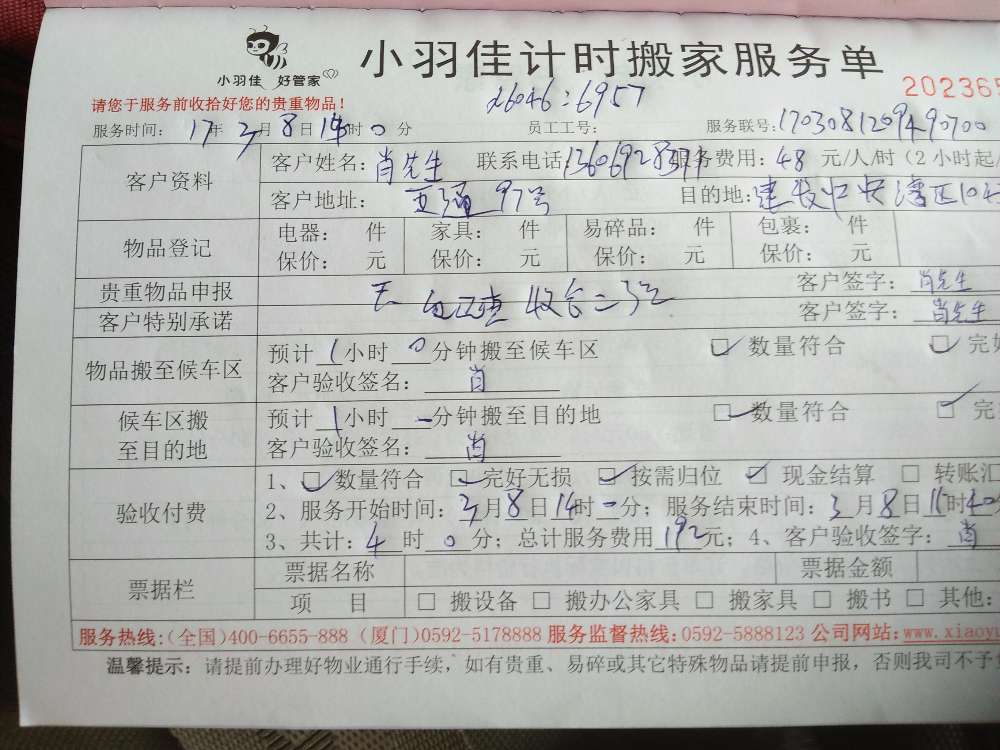 小羽佳计时搬家服务单
小羽佳 好管家
202365
请您于服务前收拾好您的贵重物品！
26046:6957
服务时间： 17年3月8日14时0分 员工工号： 服务联号：1703081209490700
客户资料
客户姓名：肖先生 联系电话：13606928377 服务费用：48元/人/时（2小时起/
客户地址： 97号 目的地：建发中央湾区10
物品登记
电器： 件 家具： 件 易碎品： 件 包裹： 件
保价： 元 保价： 元 保价： 元 保价： 元
贵重物品申报 无 客户签字：肖先生
客户特别承诺 客户签字：肖先生
物品搬至候车区
预计1小时0分钟搬至候车区 数量符合 完好
客户验收签名：肖
候车区搬至目的地
预计1小时-分钟搬至目的地 数量符合 完
客户验收签名：肖
验收付费
1、数量符合 完好无损 按需归位 现金结算 □ 转账汇
2、服务开始时间：3月8日14时-分；服务结束时间：3月8日15时40分
3、共计：4时0分；总计服务费用192元；4、客户验收签字：肖
票据栏
票据名称 票据金额
项 目 □ 搬设备 □ 搬办公家具 □ 搬家具 □ 搬书 □ 其他：
服务热线：（全国）400-6655-888（厦门）0592-5178888 服务监督热线：0592-5888123 公司网站：www.xiaoy
温馨提示：请提前办理好物业通行手续，如有贵重、易碎或其它特殊物品请提前申报，否则我司不予